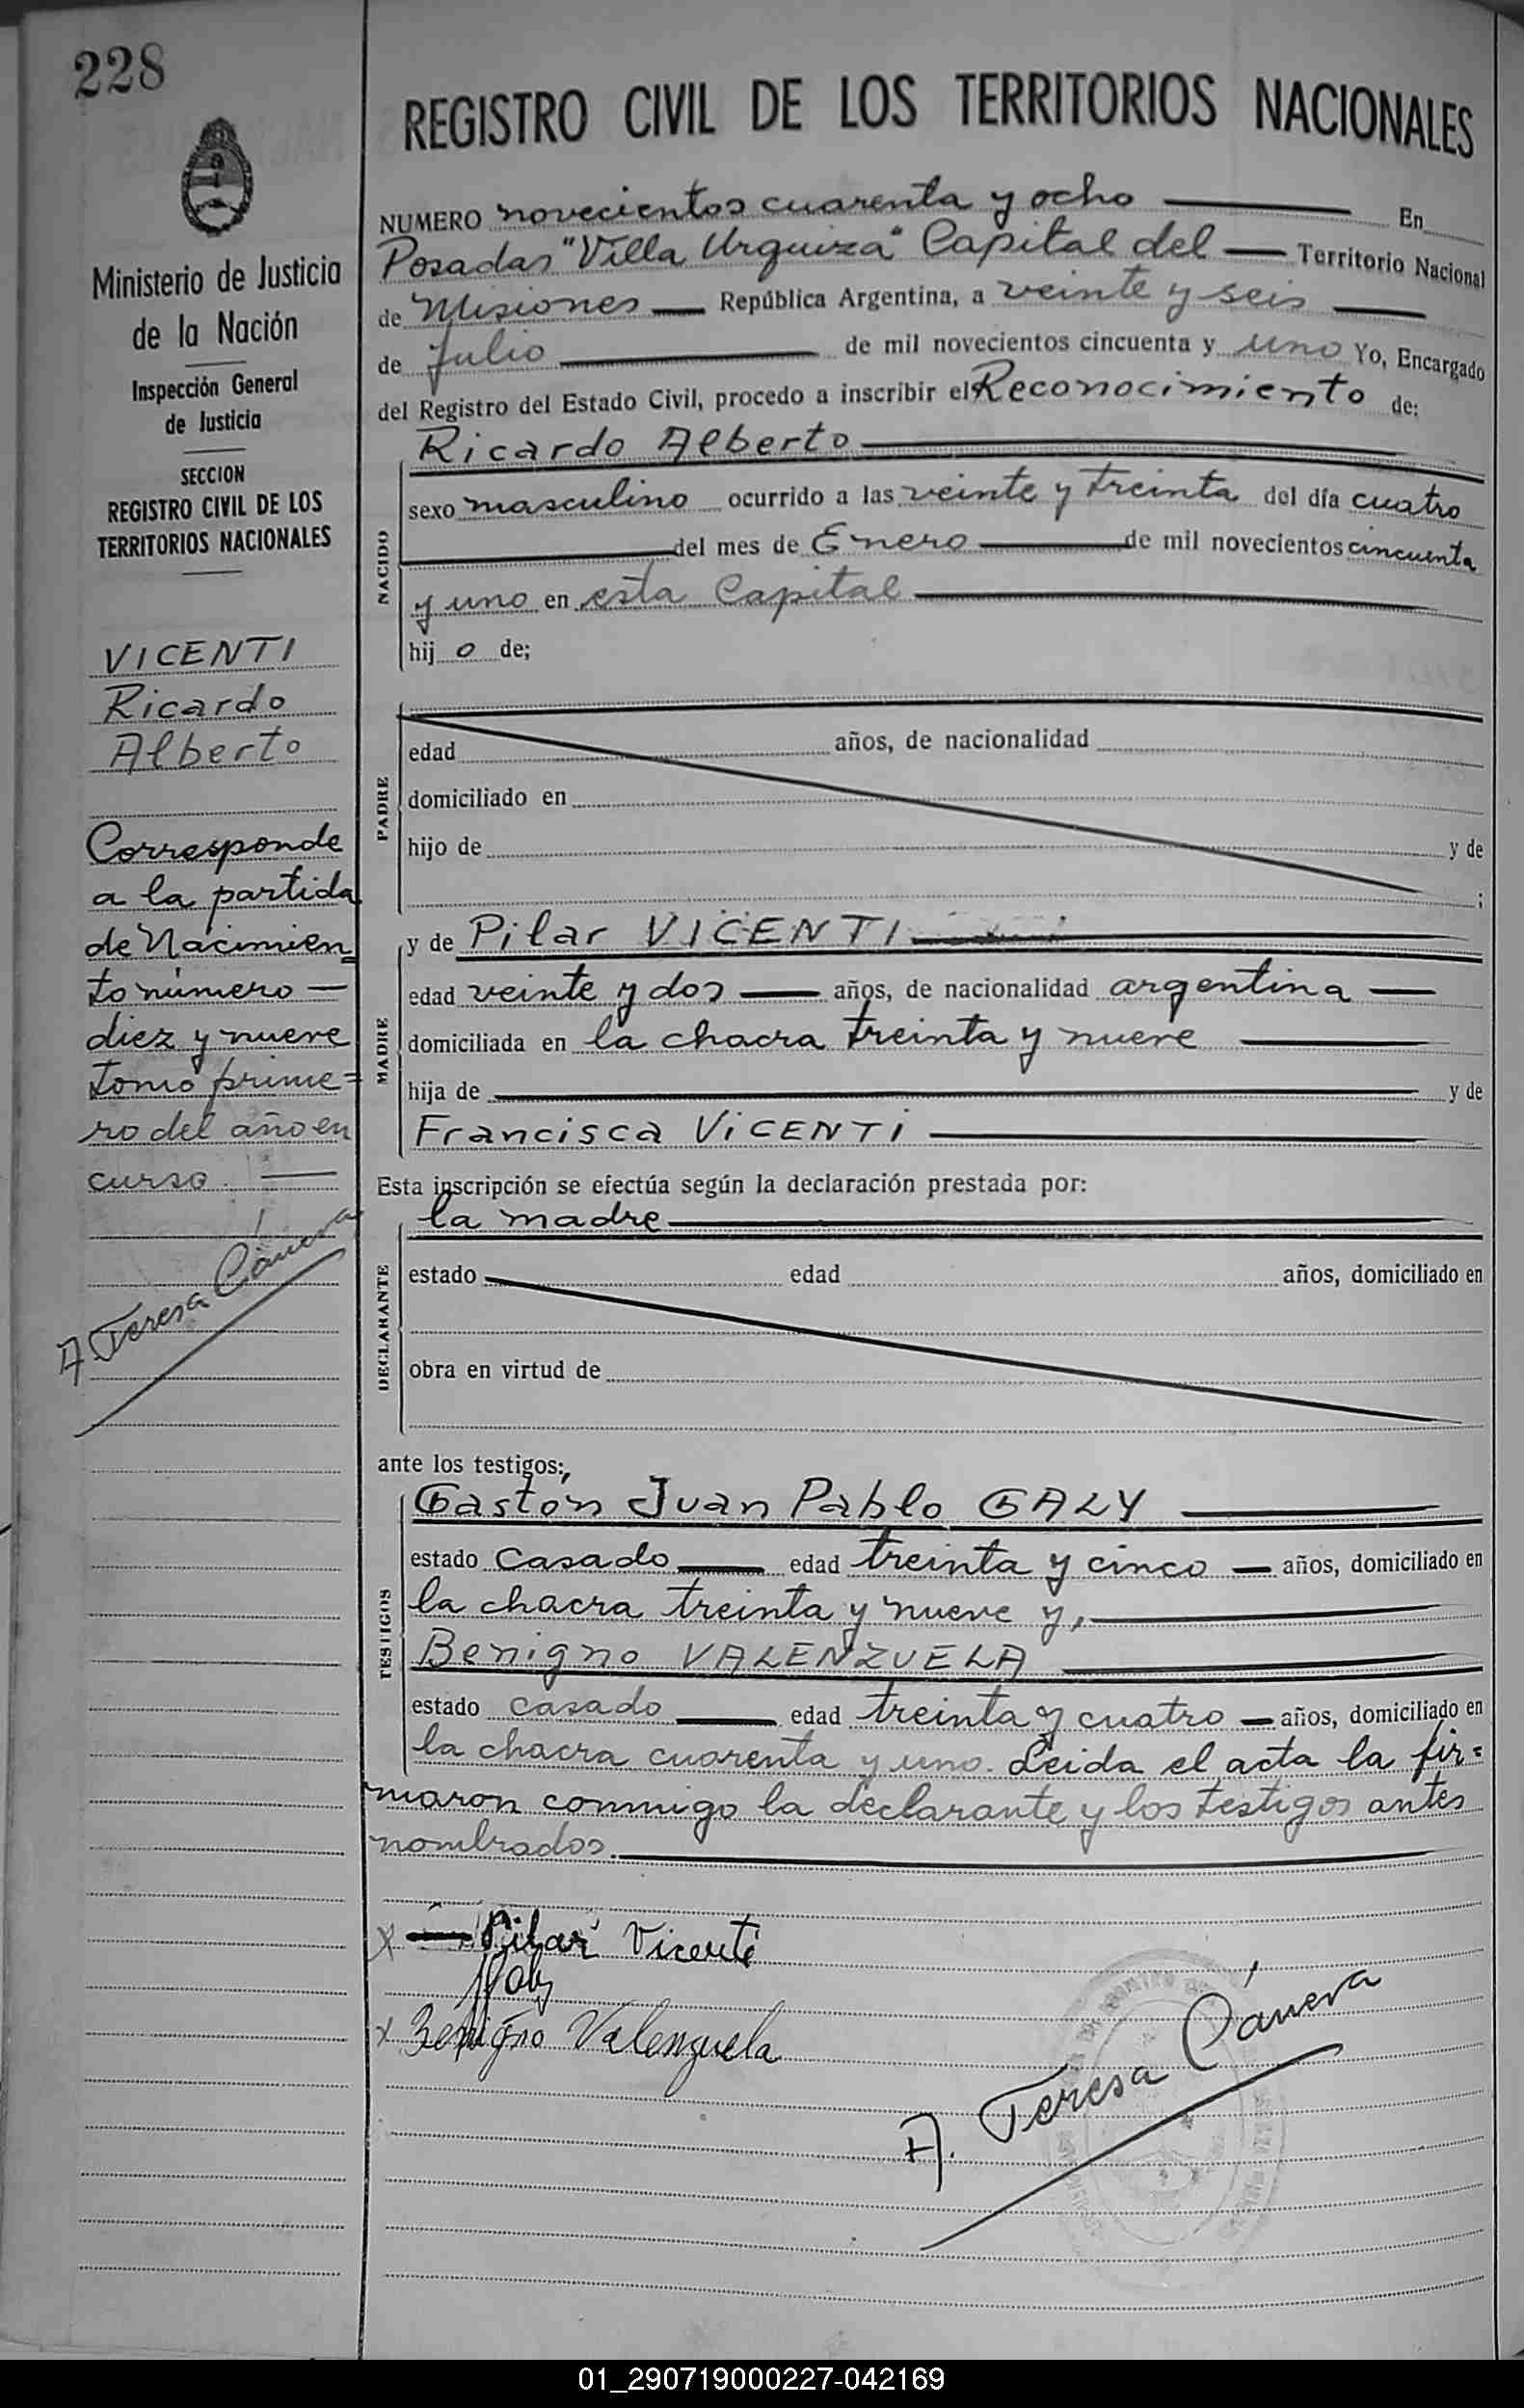 228
REGISTRO CIVIL DE LOS TERRITORIOS NACIONALES
Ministerio de Justicia
de la Nación
Inspección General
de Justicia
SECCION
REGISTRO CIVIL DE LOS
TERRITORIOS NACIONALES
VICENTI
Ricardo
Alberto
Corresponde
a la partida
de Nacimien=
to número —
diez y nueve
tomo prime=
ro del año en
curso. —
A. Teresa Cáneva
NUMERO novecientos cuarenta y ocho — En
Posadas "Villa Urquiza" Capital del — Territorio Nacional
de Misiones — República Argentina, a veinte y seis —
de Julio — de mil novecientos cincuenta y uno Yo, Encargado
del Registro del Estado Civil, procedo a inscribir el Reconocimiento de:
Ricardo Alberto —
NACIDO
sexo masculino ocurrido a las veinte y treinta del día cuatro
— del mes de Enero — de mil novecientos cincuenta
y uno en esta Capital —
hij o de;
PADRE
edad años, de nacionalidad
domiciliado en
hijo de y de
;
MADRE
y de Pilar VICENTI —
edad veinte y dos — años, de nacionalidad argentina —
domiciliada en la chacra treinta y nueve —
hija de — y de
Francisca VICENTI —
Esta inscripción se efectúa según la declaración prestada por:
la madre —
DECLARANTE
estado edad años, domiciliado en
obra en virtud de
ante los testigos:,
Gastón Juan Pablo GALY —
TESTIGOS
estado casado — edad treinta y cinco — años, domiciliado en
la chacra treinta y nueve y, —
Benigno VALENZUELA —
estado casado — edad treinta y cuatro — años, domiciliado en
la chacra cuarenta y uno. Leida el acta la fir=
maron conmigo la declarante y los testigos antes
nombrados. —
x Pilar Vicenti
x Benigno Valenzuela
A. Teresa Cáneva
01_290719000227-042169